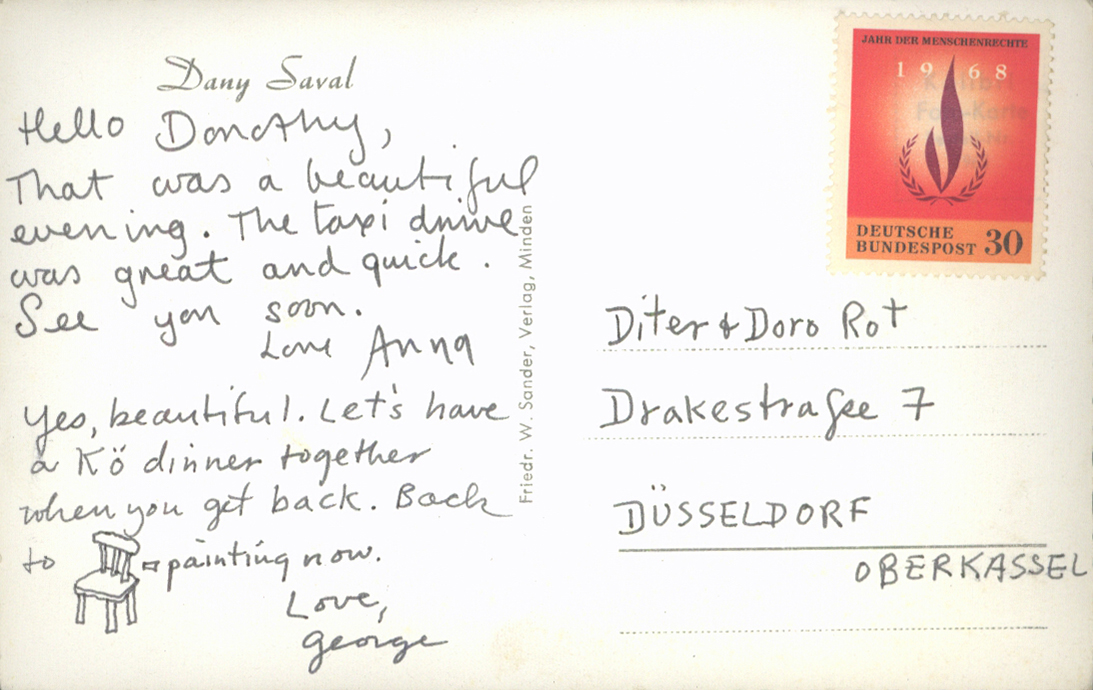 Dany Saval
Hello Dorothy,
That was a beautiful
evening. The taxi drive
was great and quick.
See you soon.
Love Anna
Yes, beautiful. Let's have
a Kö dinner together
when you get back. Back
to painting now.
Love,
George
Friedr. W. Sander, Verlag, Minden
JAHR DER MENSCHENRECHTE
1968
DEUTSCHE
BUNDESPOST 30
Diter & Doro Rot
Drakestraße 7
DÜSSELDORF
OBERKASSEL